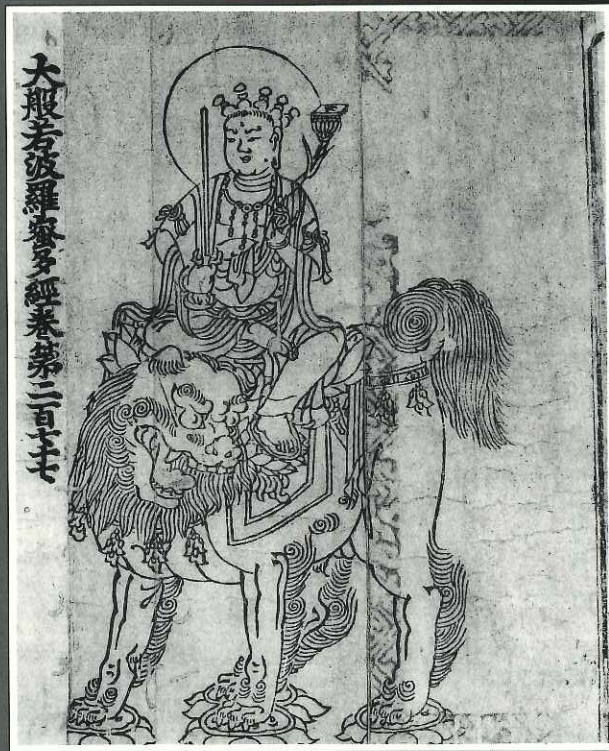 大般若波羅蜜多經卷第二百七十七